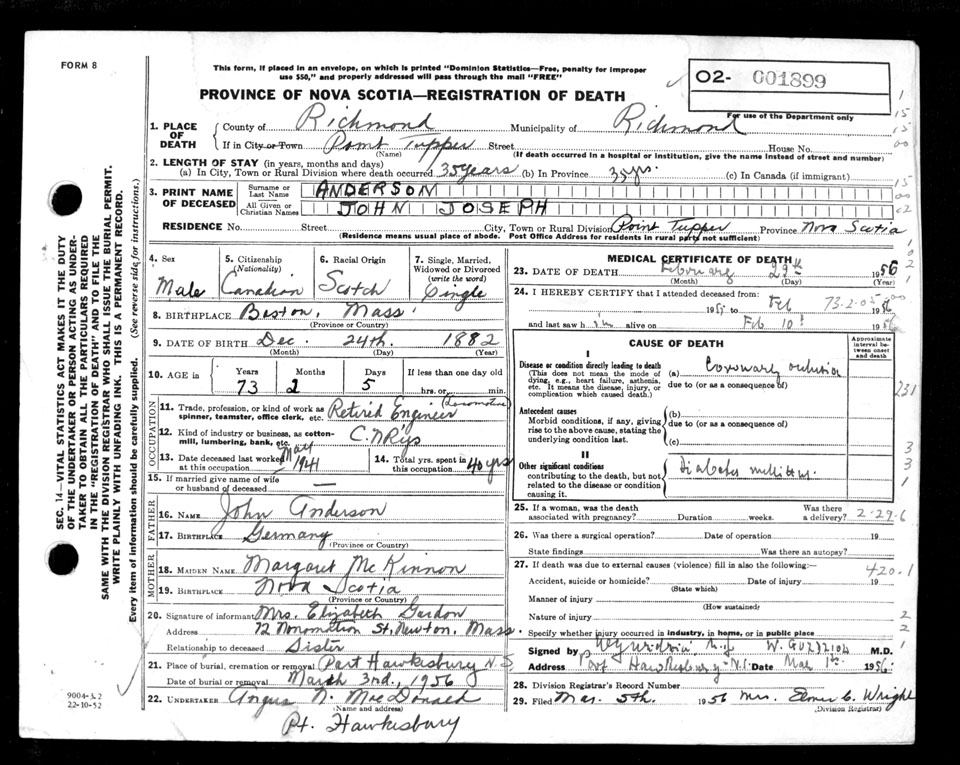 FORM 8
This form, if placed in an envelope, on which is printed "Dominion Statistics—Free, penalty for improper
use $50," and properly addressed will pass through the mail "FREE"
02- 001899
For use of the Department only
PROVINCE OF NOVA SCOTIA—REGISTRATION OF DEATH
1. PLACE OF DEATH { County of Richmond Municipality of Richmond
If in City or Town Point Tupper Street House No.
(Name) (If death occurred in a hospital or institution, give the name instead of street and number)
2. LENGTH OF STAY (in years, months and days)
(a) In City, Town or Rural Division where death occurred 35 years (b) In Province 35 yrs. (c) In Canada (if immigrant)
3. PRINT NAME OF DECEASED { Surname or Last Name ANDERSON
All Given or Christian Names JOHN JOSEPH
RESIDENCE No. Street City, Town or Rural Division Point Tupper Province Nova Scotia
(Residence means usual place of abode. Post Office Address for residents in rural parts not sufficient)
SEC. 14—VITAL STATISTICS ACT MAKES IT THE DUTY
OF THE UNDERTAKER OR PERSON ACTING AS UNDER-
TAKER TO OBTAIN ALL THE PARTICULARS REQUIRED
IN THE "REGISTRATION OF DEATH" AND TO FILE THE
SAME WITH THE DIVISION REGISTRAR WHO SHALL ISSUE THE BURIAL PERMIT.
WRITE PLAINLY WITH UNFADING INK. THIS IS A PERMANENT RECORD.
Every item of information should be carefully supplied. (See reverse side for instructions.)
4. Sex Male
5. Citizenship (Nationality) Canadian
6. Racial Origin Scotch
7. Single, Married, Widowed or Divorced (write the word) Single
8. BIRTHPLACE Boston, Mass.
(Province or Country)
9. DATE OF BIRTH Dec. 24th. 1882
(Month) (Day) (Year)
10. AGE in Years 73 Months 2 Days 5 If less than one day old
hrs. or min.
OCCUPATION
11. Trade, profession, or kind of work as spinner, teamster, office clerk, etc. Retired Engineer (Locomotive)
12. Kind of industry or business, as cotton-mill, lumbering, bank, etc. C.N Rlys
13. Date deceased last worked at this occupation 1941
14. Total yrs. spent in this occupation 40 yrs
15. If married give name of wife or husband of deceased —
FATHER
16. NAME John Anderson
17. BIRTHPLACE Germany
(Province or Country)
MOTHER
18. MAIDEN NAME Margaret McKinnon
19. BIRTHPLACE Nova Scotia
(Province or Country)
20. Signature of informant Mrs. Elizabeth Gordon
Address 72 St, Newton, Mass.
Relationship to deceased Sister
21. Place of burial, cremation or removal Port Hawksbury N.S
Date of burial or removal March 3rd., 1956
22. UNDERTAKER Angus N. MacDonald
(Name and address)
Pt. Hawksbury
9004-
22-10-52
MEDICAL CERTIFICATE OF DEATH
23. DATE OF DEATH February 29th 1956
(Month) (Day) (Year)
24. I HEREBY CERTIFY that I attended deceased from:
195 to Feb 1956
and last saw him alive on Feb 10th 1956
73-2-05
CAUSE OF DEATH
Approximate interval between onset and death
I
Disease or condition directly leading to death
(This does not mean the mode of dying, e.g., heart failure, asthenia, etc. It means the disease, injury, or complication which caused death.)
(a) Coronary occlusion
due to (or as a consequence of)
Antecedent causes
Morbid conditions, if any, giving rise to the above cause, stating the underlying condition last.
(b)
due to (or as a consequence of)
(c)
II
Other significant conditions
contributing to the death, but not related to the disease or condition causing it.
Diabetes mellitus.
231
25. If a woman, was the death associated with pregnancy? Duration weeks. Was there a delivery?
2-29-6
26. Was there a surgical operation? Date of operation 19
State findings Was there an autopsy?
27. If death was due to external causes (violence) fill in also the following:—
420.1
Accident, suicide or homicide? Date of injury 19
(State which)
Manner of injury
(How sustained)
Nature of injury
Specify whether injury occurred in industry, in home, or in public place
Signed by W. M.D.
Address Port Hawkesbury N.S. Date Mar 1st 1956
28. Division Registrar's Record Number
29. Filed Mar. 5th. 1956 Mrs. Elmer C. Wright
(Division Registrar)